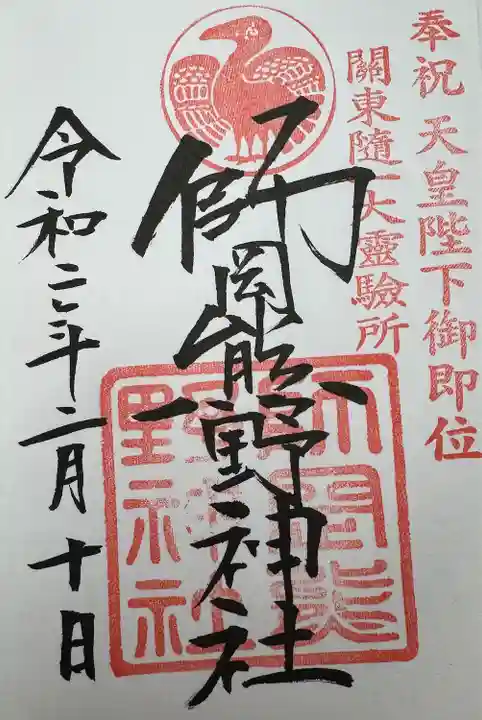 奉祝 天皇陛下御即位
關東随一大靈驗所
師岡熊野神社
令和二年二月十日
師岡熊野神社